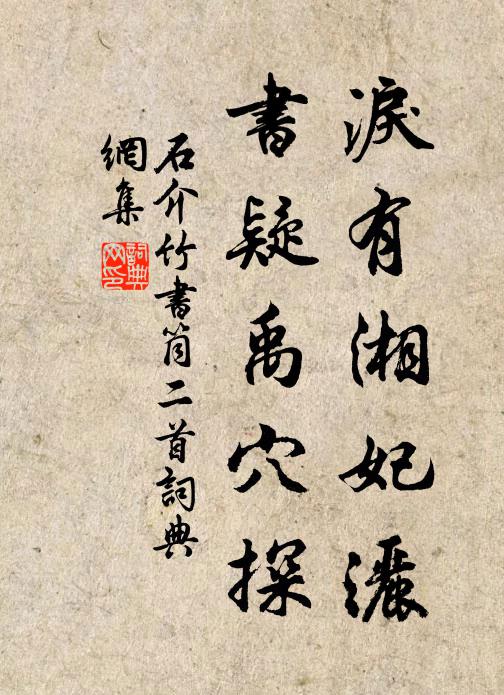 淚有湘妃灑
書疑禹穴探
石介竹書筒二首詞典
網集
詞典网印